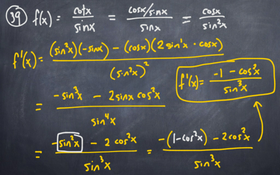 39 f(x) = cotx/sinx = (cosx/sinx)/sinx = cosx/sin²x
f'(x) = ((sin²x)(-sinx) - (cosx)(2sin'x · cosx))/(sin²x)²
= (-sin³x - 2sinx cos²x)/sin⁴x
f'(x) = (-1 - cos²x)/sin³x
= (-sin²x - 2cos²x)/sin³x = (-(1-cos²x) - 2cos²x)/sin³x